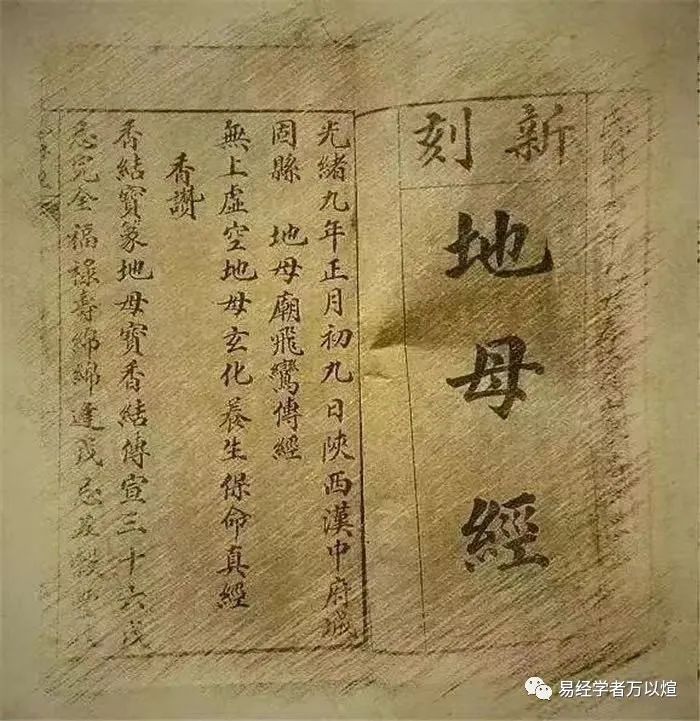 新刻
地母經
光緒九年正月初九日陝西漢中府城
固縣 地母廟飛鸞傳經
無上虛空地母玄化養生保命真經
香讚
香結寶篆地母寶香結傳宣三十六戊
忌完全福祿壽綿綿逢戊忌
易经学者万以煊